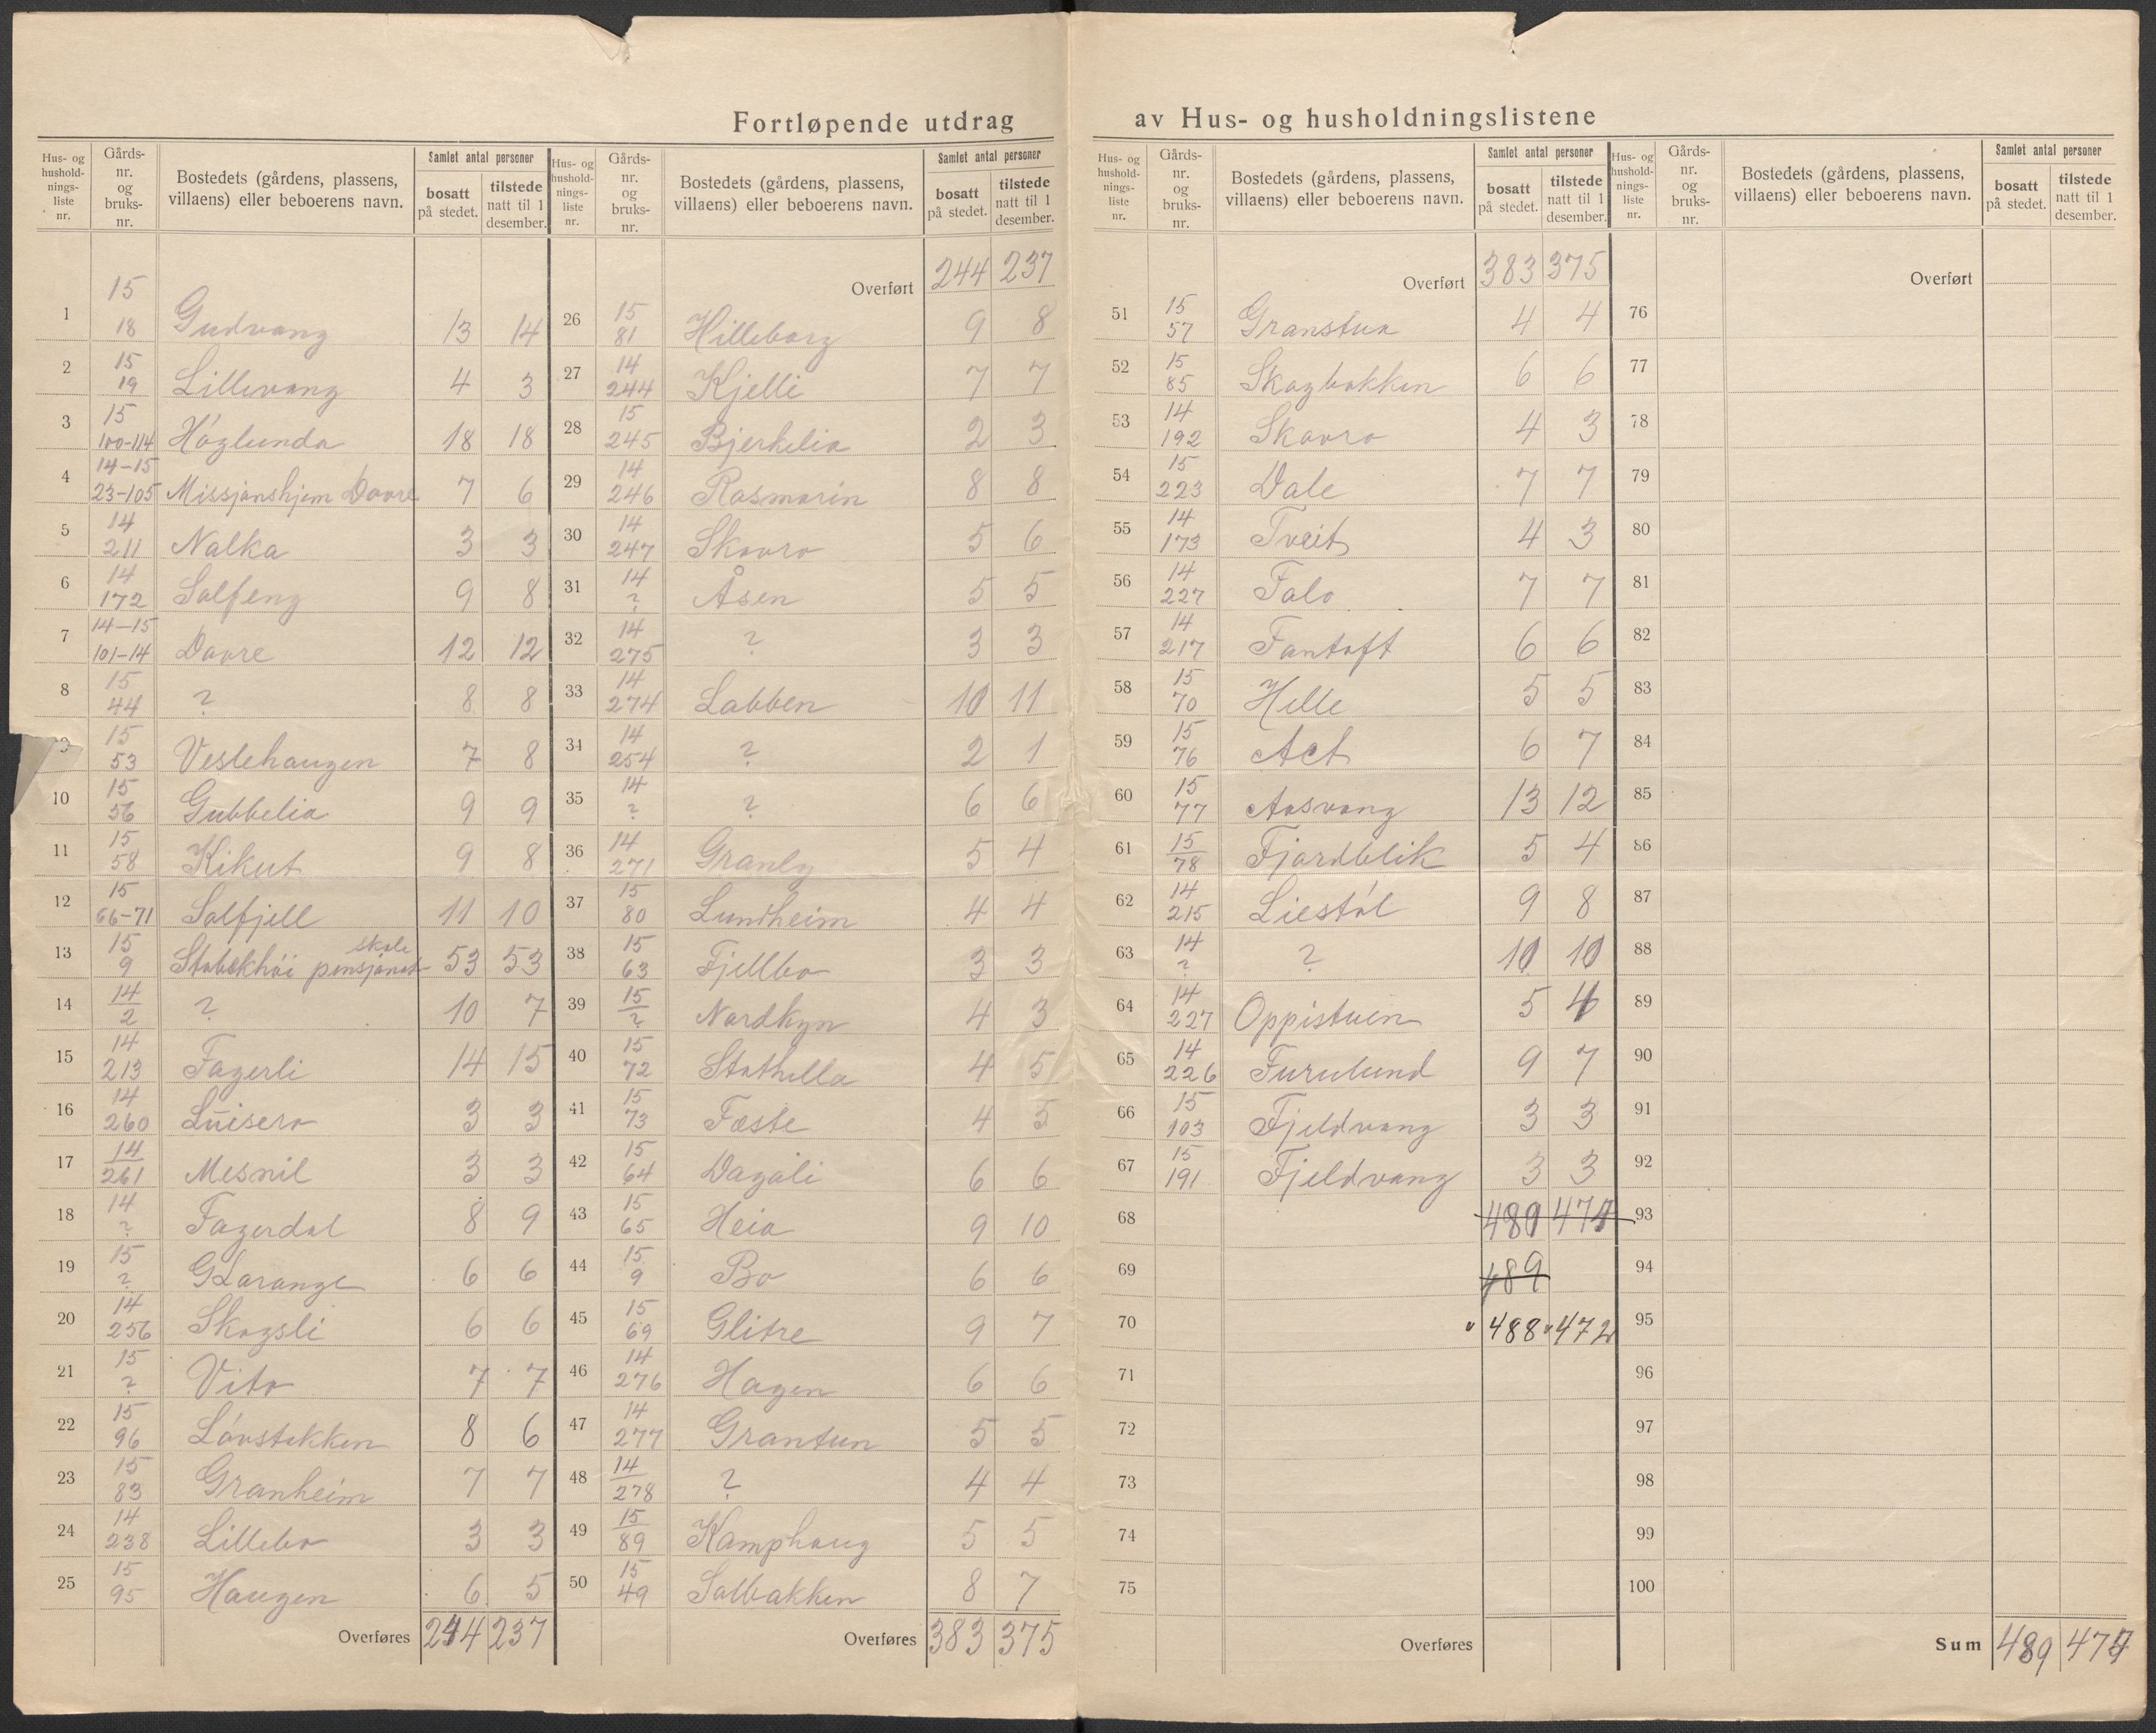 Fortløpende utdrag av Hus- og husholdningslistene
Hus- og husholdnings-liste nr. | Gårds-nr. og bruks-nr. | Bostedets (gårdens, plassens, villaens) eller beboerens navn. | Samlet antal personer | bosatt på stedet. | tilstede natt til 1 desember.
1 | 15 18 | Gudvang | 13 | 14
2 | 15 19 | Lillevang | 4 | 3
3 | 15 100-114 | Høglunda | 18 | 18
4 | 14-15 23-105 | Missjonshjem Dovre | 7 | 6
5 | 14 211 | Nalka | 3 | 3
6 | 14 172 | Solfeng | 9 | 8
7 | 14-15 101-14 | Dovre | 12 | 12
8 | 15 44 | ? | 8 | 8
9 | 15 53 | Veslehaugen | 7 | 8
10 | 15 56 | Gubbelia | 9 | 9
11 | 15 58 | Kikut | 9 | 8
12 | 15 66-71 | Solfjell | 11 | 10
13 | 15 9 | Stabekhøi skole pensjonat | 53 | 53
14 | 14 2 | ? | 10 | 7
15 | 14 213 | Fagerli | 14 | 15
16 | 14 260 | Luisero | 3 | 3
17 | 14 261 | Mesnil | 3 | 3
18 | 14 ? | Fagerdal | 8 | 9
19 | 15 ? | 6 | 6
20 | 14 256 | Skogsli | 6 | 6
21 | 15 ? | Vito | 7 | 7
22 | 15 96 | Løvstakken | 8 | 6
23 | 15 83 | Granheim | 7 | 7
24 | 14 238 | Lillebo | 3 | 3
25 | 15 95 | Haugen | 6 | 5
Overføres 244 237
Hus- og husholdnings-liste nr. | Gårds-nr. og bruks-nr. | Bostedets (gårdens, plassens, villaens) eller beboerens navn. | Samlet antal personer | bosatt på stedet. | tilstede natt til 1 desember.
Overført 244 237
26 | 15 81 | Hilleborg | 9 | 8
27 | 14 244 | Kjelli | 7 | 7
28 | 15 245 | Bjerkelia | 2 | 3
29 | 14 246 | Rosmarin | 8 | 8
30 | 14 247 | Skovro | 5 | 6
31 | 14 ? | Åsen | 5 | 5
32 | 14 275 | ? | 3 | 3
33 | 14 274 | Labben | 10 | 11
34 | 14 254 | ? | 2 | 1
35 | 14 ? | ? | 6 | 6
36 | 14 271 | Granly | 5 | 4
37 | 15 80 | Lundheim | 4 | 4
38 | 15 63 | Fjellbo | 3 | 3
39 | 15 ? | Nordkyn | 4 | 3
40 | 15 72 | Stathella | 4 | 5
41 | 15 73 | Fæste | 4 | 5
42 | 15 64 | Dagali | 6 | 6
43 | 15 65 | Heia | 9 | 10
44 | 15 9 | Bo | 6 | 6
45 | 15 69 | Glitre | 9 | 7
46 | 14 276 | Hagen | 6 | 6
47 | 14 277 | Grantun | 5 | 5
48 | 14 278 | ? | 4 | 4
49 | 15 89 | Kamphaug | 5 | 5
50 | 15 49 | Solbakken | 8 | 7
Overføres 383 375
Hus- og husholdnings-liste nr. | Gårds-nr. og bruks-nr. | Bostedets (gårdens, plassens, villaens) eller beboerens navn. | Samlet antal personer | bosatt på stedet. | tilstede natt til 1 desember.
Overført 383 375
51 | 15 57 | Granstua | 4 | 4
52 | 15 85 | Skogbakken | 6 | 6
53 | 14 192 | Skovro | 4 | 3
54 | 15 223 | Dale | 7 | 7
55 | 14 173 | Tveit | 4 | 3
56 | 14 227 | Falo | 7 | 7
57 | 14 217 | Fantoft | 6 | 6
58 | 15 70 | Helle | 5 | 5
59 | 15 76 | 6 | 7
60 | 15 77 | Aasvang | 13 | 12
61 | 15 78 | Fjordblik | 5 | 4
62 | 14 215 | Liestøl | 9 | 8
63 | 14 ? | ? | 10 | 10
64 | 14 227 | Oppistuen | 5 | 4
65 | 14 226 | Furulund | 9 | 7
66 | 15 103 | Fjeldvang | 3 | 3
67 | 15 191 | Fjeldvang | 3 | 3
68 489 474
69 489
70 488 472
71
72
73
74
75
Overføres
Hus- og husholdnings-liste nr. | Gårds-nr. og bruks-nr. | Bostedets (gårdens, plassens, villaens) eller beboerens navn. | Samlet antal personer | bosatt på stedet. | tilstede natt til 1 desember.
Overført
76
77
78
79
80
81
82
83
84
85
86
87
88
89
90
91
92
93
94
95
96
97
98
99
100
Sum 489 474